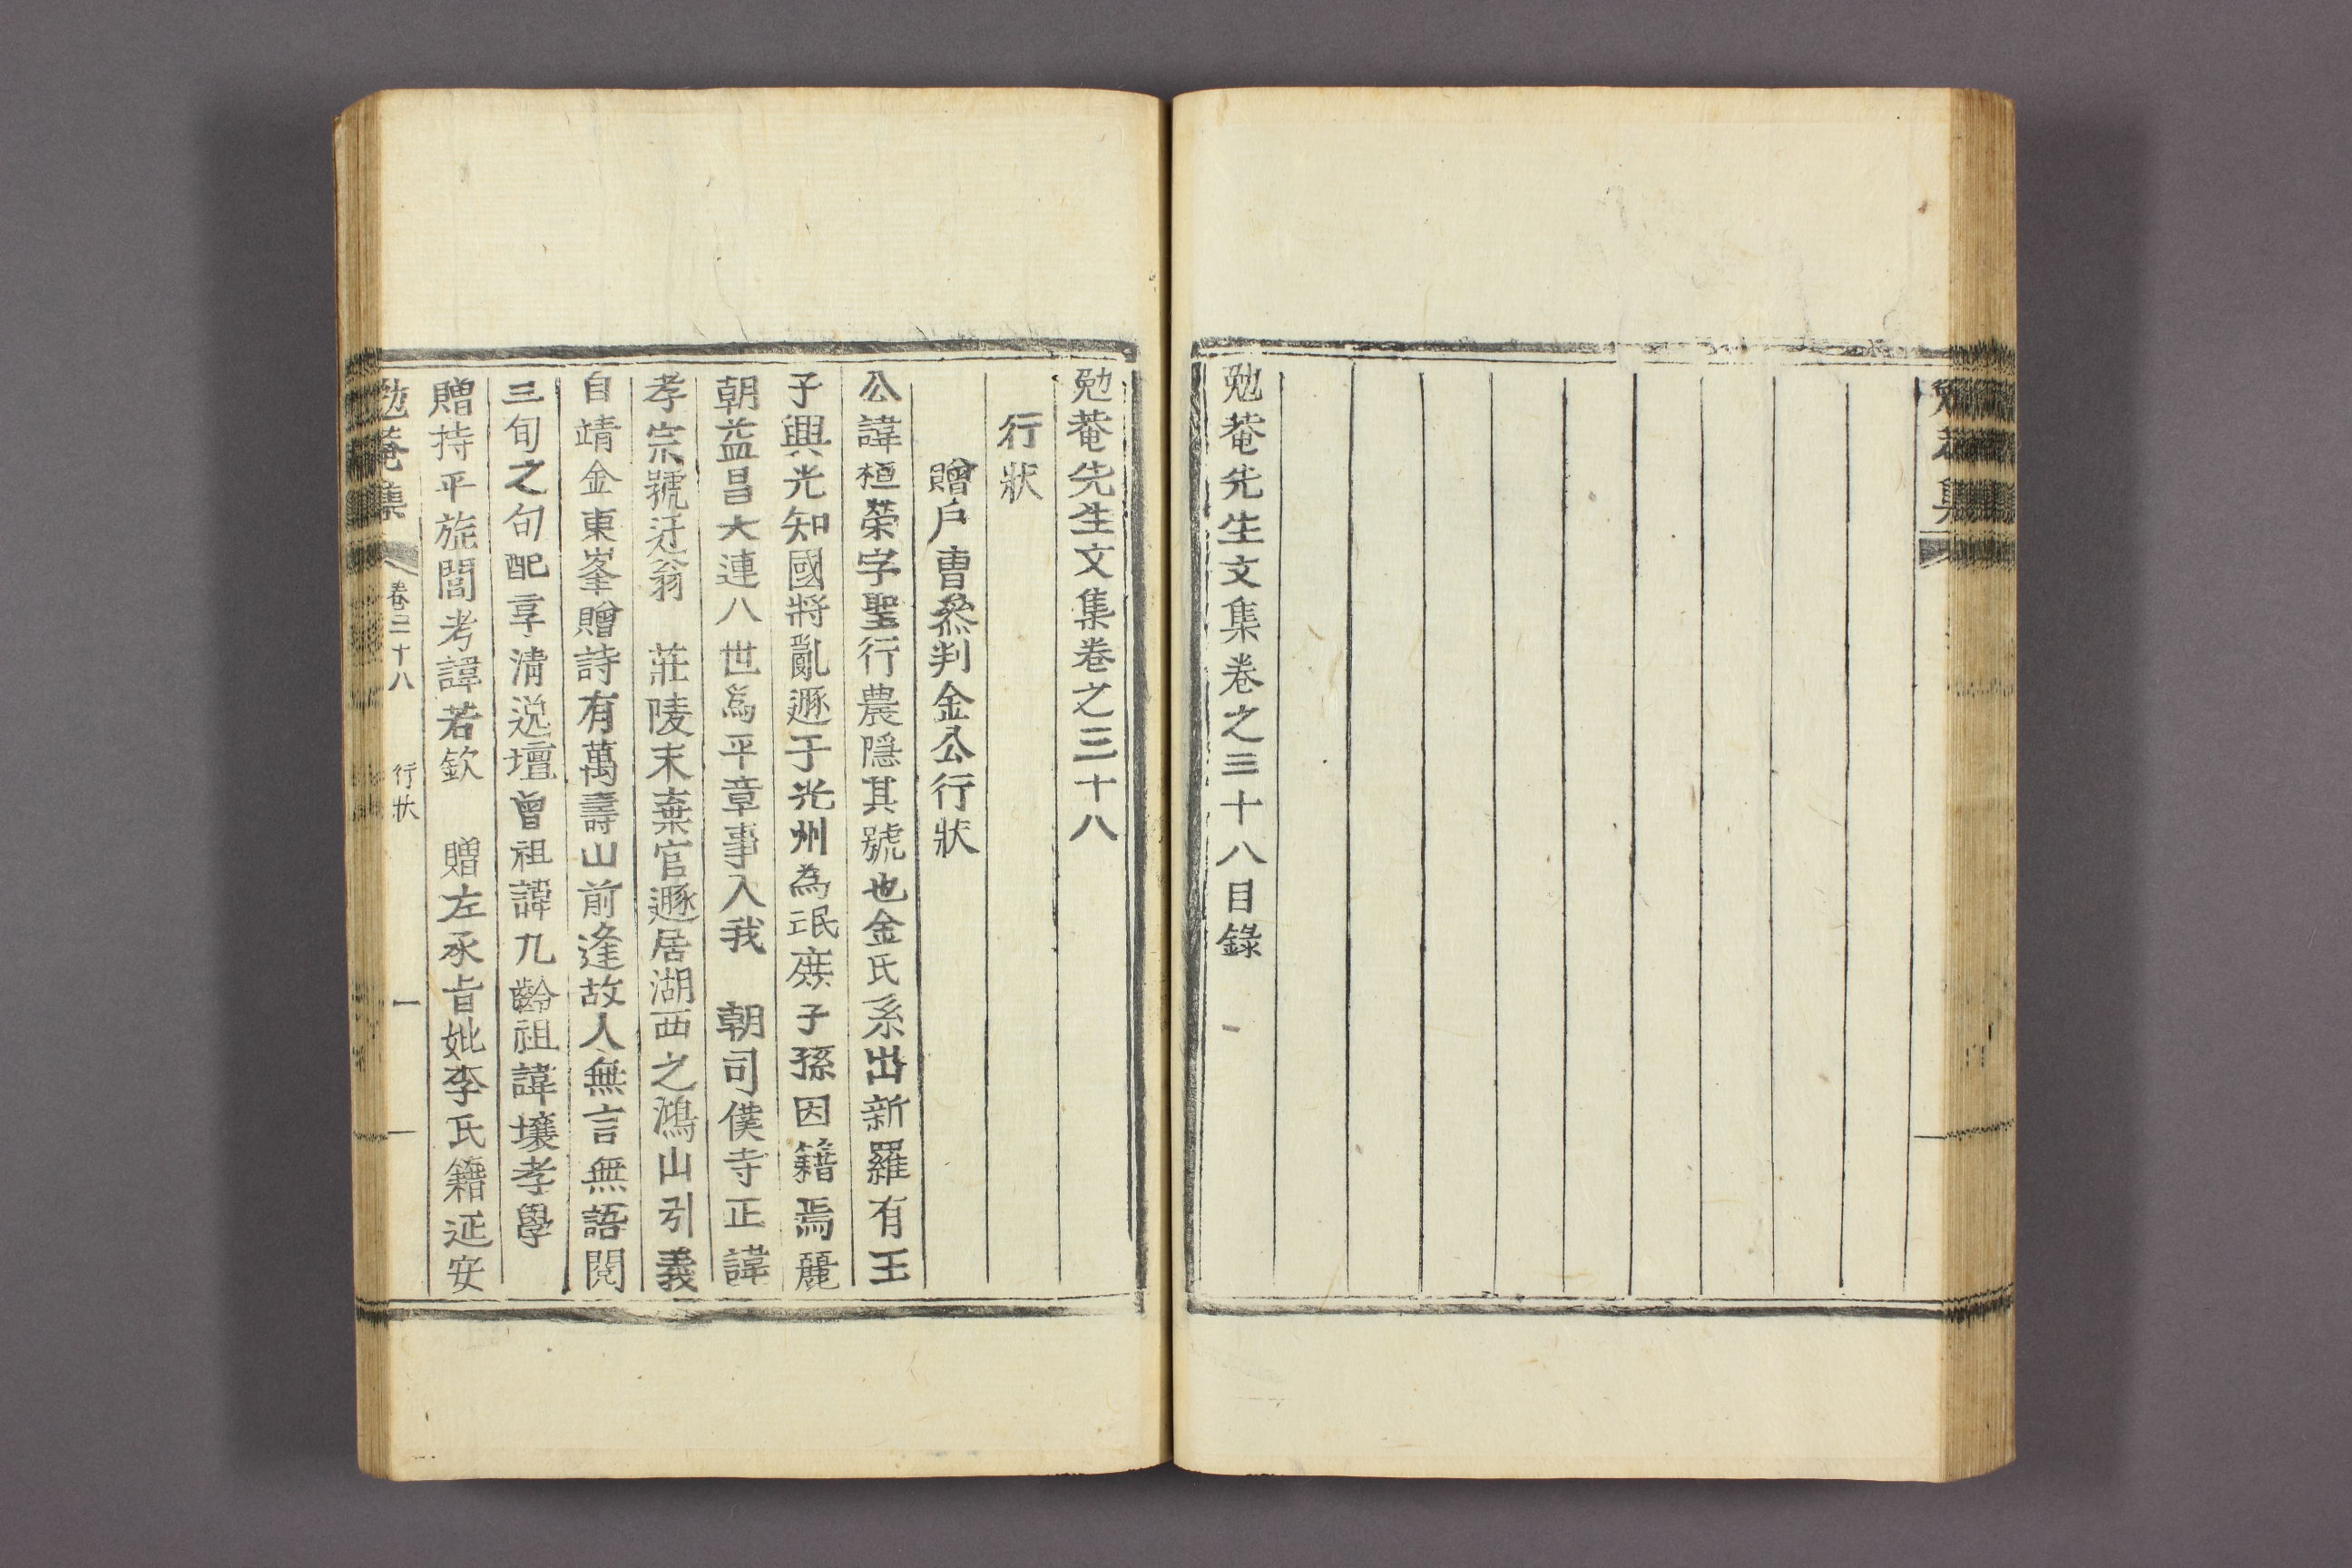 勉菴集
勉菴先生文集卷之三十八目錄
勉菴先生文集卷之三十八
行狀
贈戶曺叅判金公行狀
公諱桓榮字聖行農隱其號也金氏系出新羅有王
子興光知國將亂遯于光州為氓庶子孫因籍焉麗
朝益昌大連八世爲平章事入我 朝司僕寺正諱
孝宗號迂翁 莊陵末棄官遯居湖西之鴻山引義
自靖金東峯贈詩有萬壽山前逢故人無言無語閱
三旬之句配享淸逸壇曾祖諱九齡祖諱壤孝學
贈持平旌閭考諱若欽 贈左承旨妣李氏籍延安
勉菴集 卷三十八 行狀 一